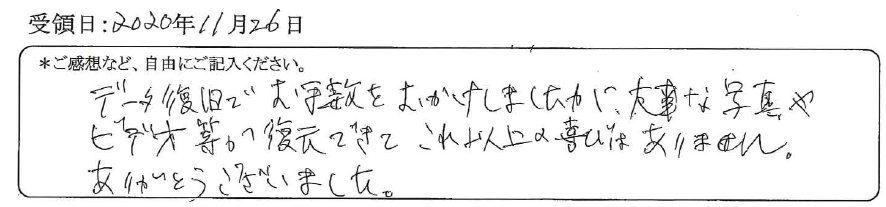 受領日:2020年11月26日
*ご感想など、自由にご記入ください。
データ復旧でお手数をおかけしましたが、大事な写真や
ビデオ等が復元できて これ以上の喜びはありません。
ありがとうございました。